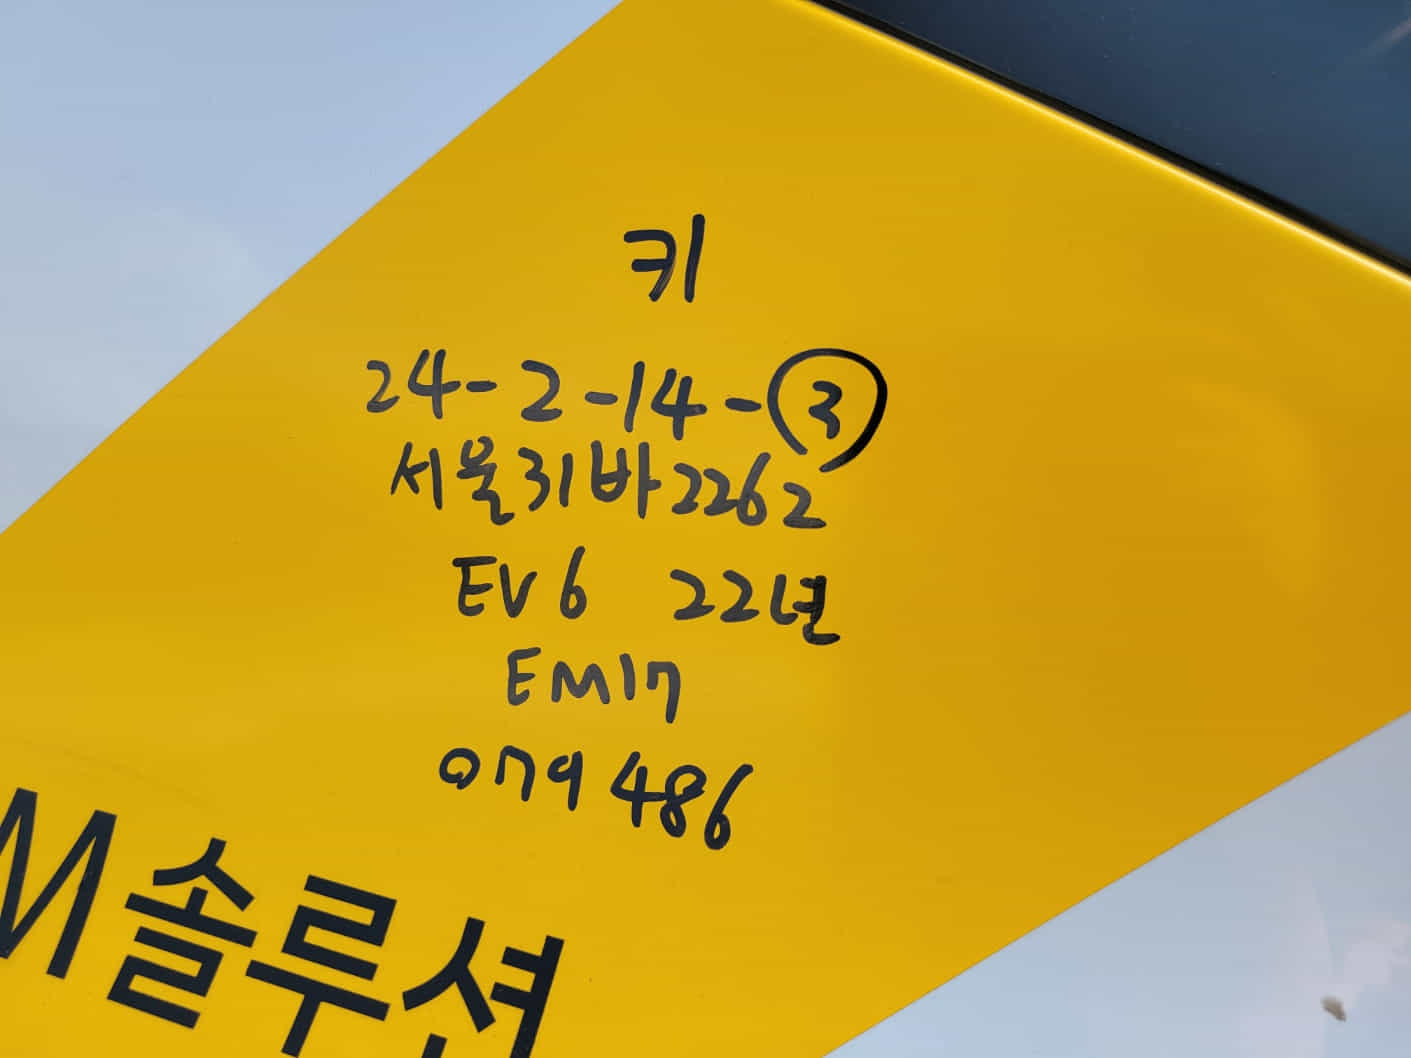 키
24-2-14-③
서울31바2262
EV6 22년
EM17
079486
M솔루션